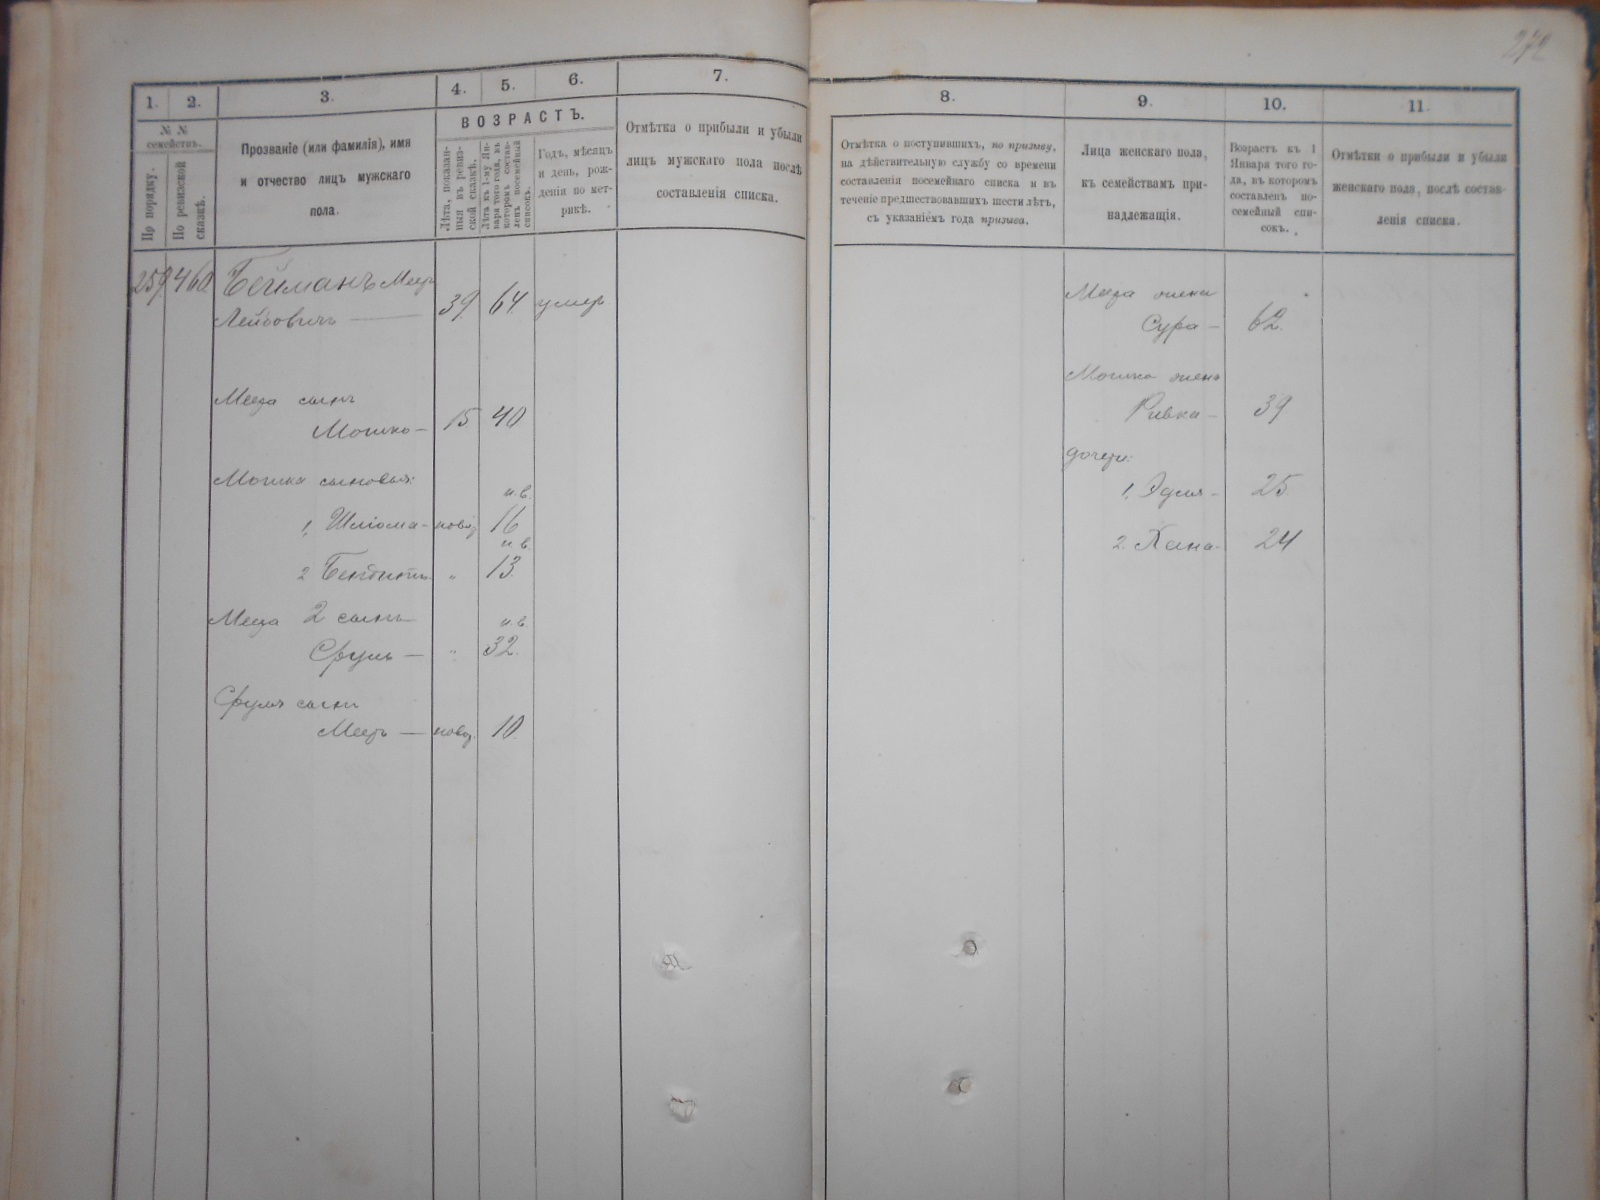 272
1.
2.
3.
4.
5.
6.
7.
№ №
семействъ.
По порядку.
По ревизской
сказкѣ.
Прозваніе (или фамилія), имя
и отчество лицъ мужскаго
пола.
ВОЗРАСТЪ.
Лѣта, показан-
ныя въ ревиз-
ской сказкѣ.
Лѣта къ 1-му Ян-
варя того года, въ
которомъ состав-
ленъ посемейный
списокъ.
Годъ, мѣсяцъ
и день, рож-
денія по мет-
рикѣ.
Отмѣтка о прибыли и убыли
лицъ мужскаго пола послѣ
составленія списка.
259 460 Бейманъ
Лейбовичъ — 39 64 умеръ
сынъ
Мошко — 15 40
Мошка сыновья:
н.в.
1, Шліома — новор. 16
н.в.
2 " 13.
2 сынъ н.в.
Сруль — " 32.
Сруля сынъ
— новор. 10.
8.
9.
10.
11.
Отмѣтка о поступившихъ, по призыву,
на дѣйствительную службу со времени
составленія посемейнаго списка и въ
теченіе предшествовавшихъ шести лѣтъ,
съ указаніемъ года призыва.
Лица женскаго пола,
къ семействамъ при-
надлежащія.
Возрастъ къ 1
Января того го-
да, въ которомъ
составленъ по-
семейный спи-
сокъ.
Отмѣтки о прибыли и убыли
женскаго пола, послѣ состав-
ленія списка.
жена
Сура — 62.
Мошка жена
Ривка — 39
дочери:
1, 25
2. Хана — 24